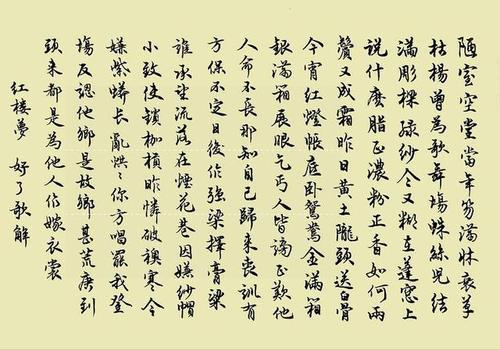 陋室空堂當年笏滿牀衰草
枯楊曾為歌舞場蛛絲兒結
滿彫樑緑紗今又糊在蓬窓上
說什麼脂正濃粉正香如何兩
鬢又成霜昨日黃土隴頭送白骨
今宵紅燈帳底卧鴛鴦金滿箱
銀滿箱展眼乞丐人皆謗正歎他
人命不長那知自己歸來喪訓有
方保不定日後作強梁擇膏粱
誰承望流落在煙花巷因嫌紗帽
小致使鎖枷槓昨憐破襖寒今
嫌紫蟒長亂烘々你方唱罷我登
場反認他鄉是故鄉甚荒唐到
頭來都是為他人作嫁衣裳
红楼夢 好了歌解